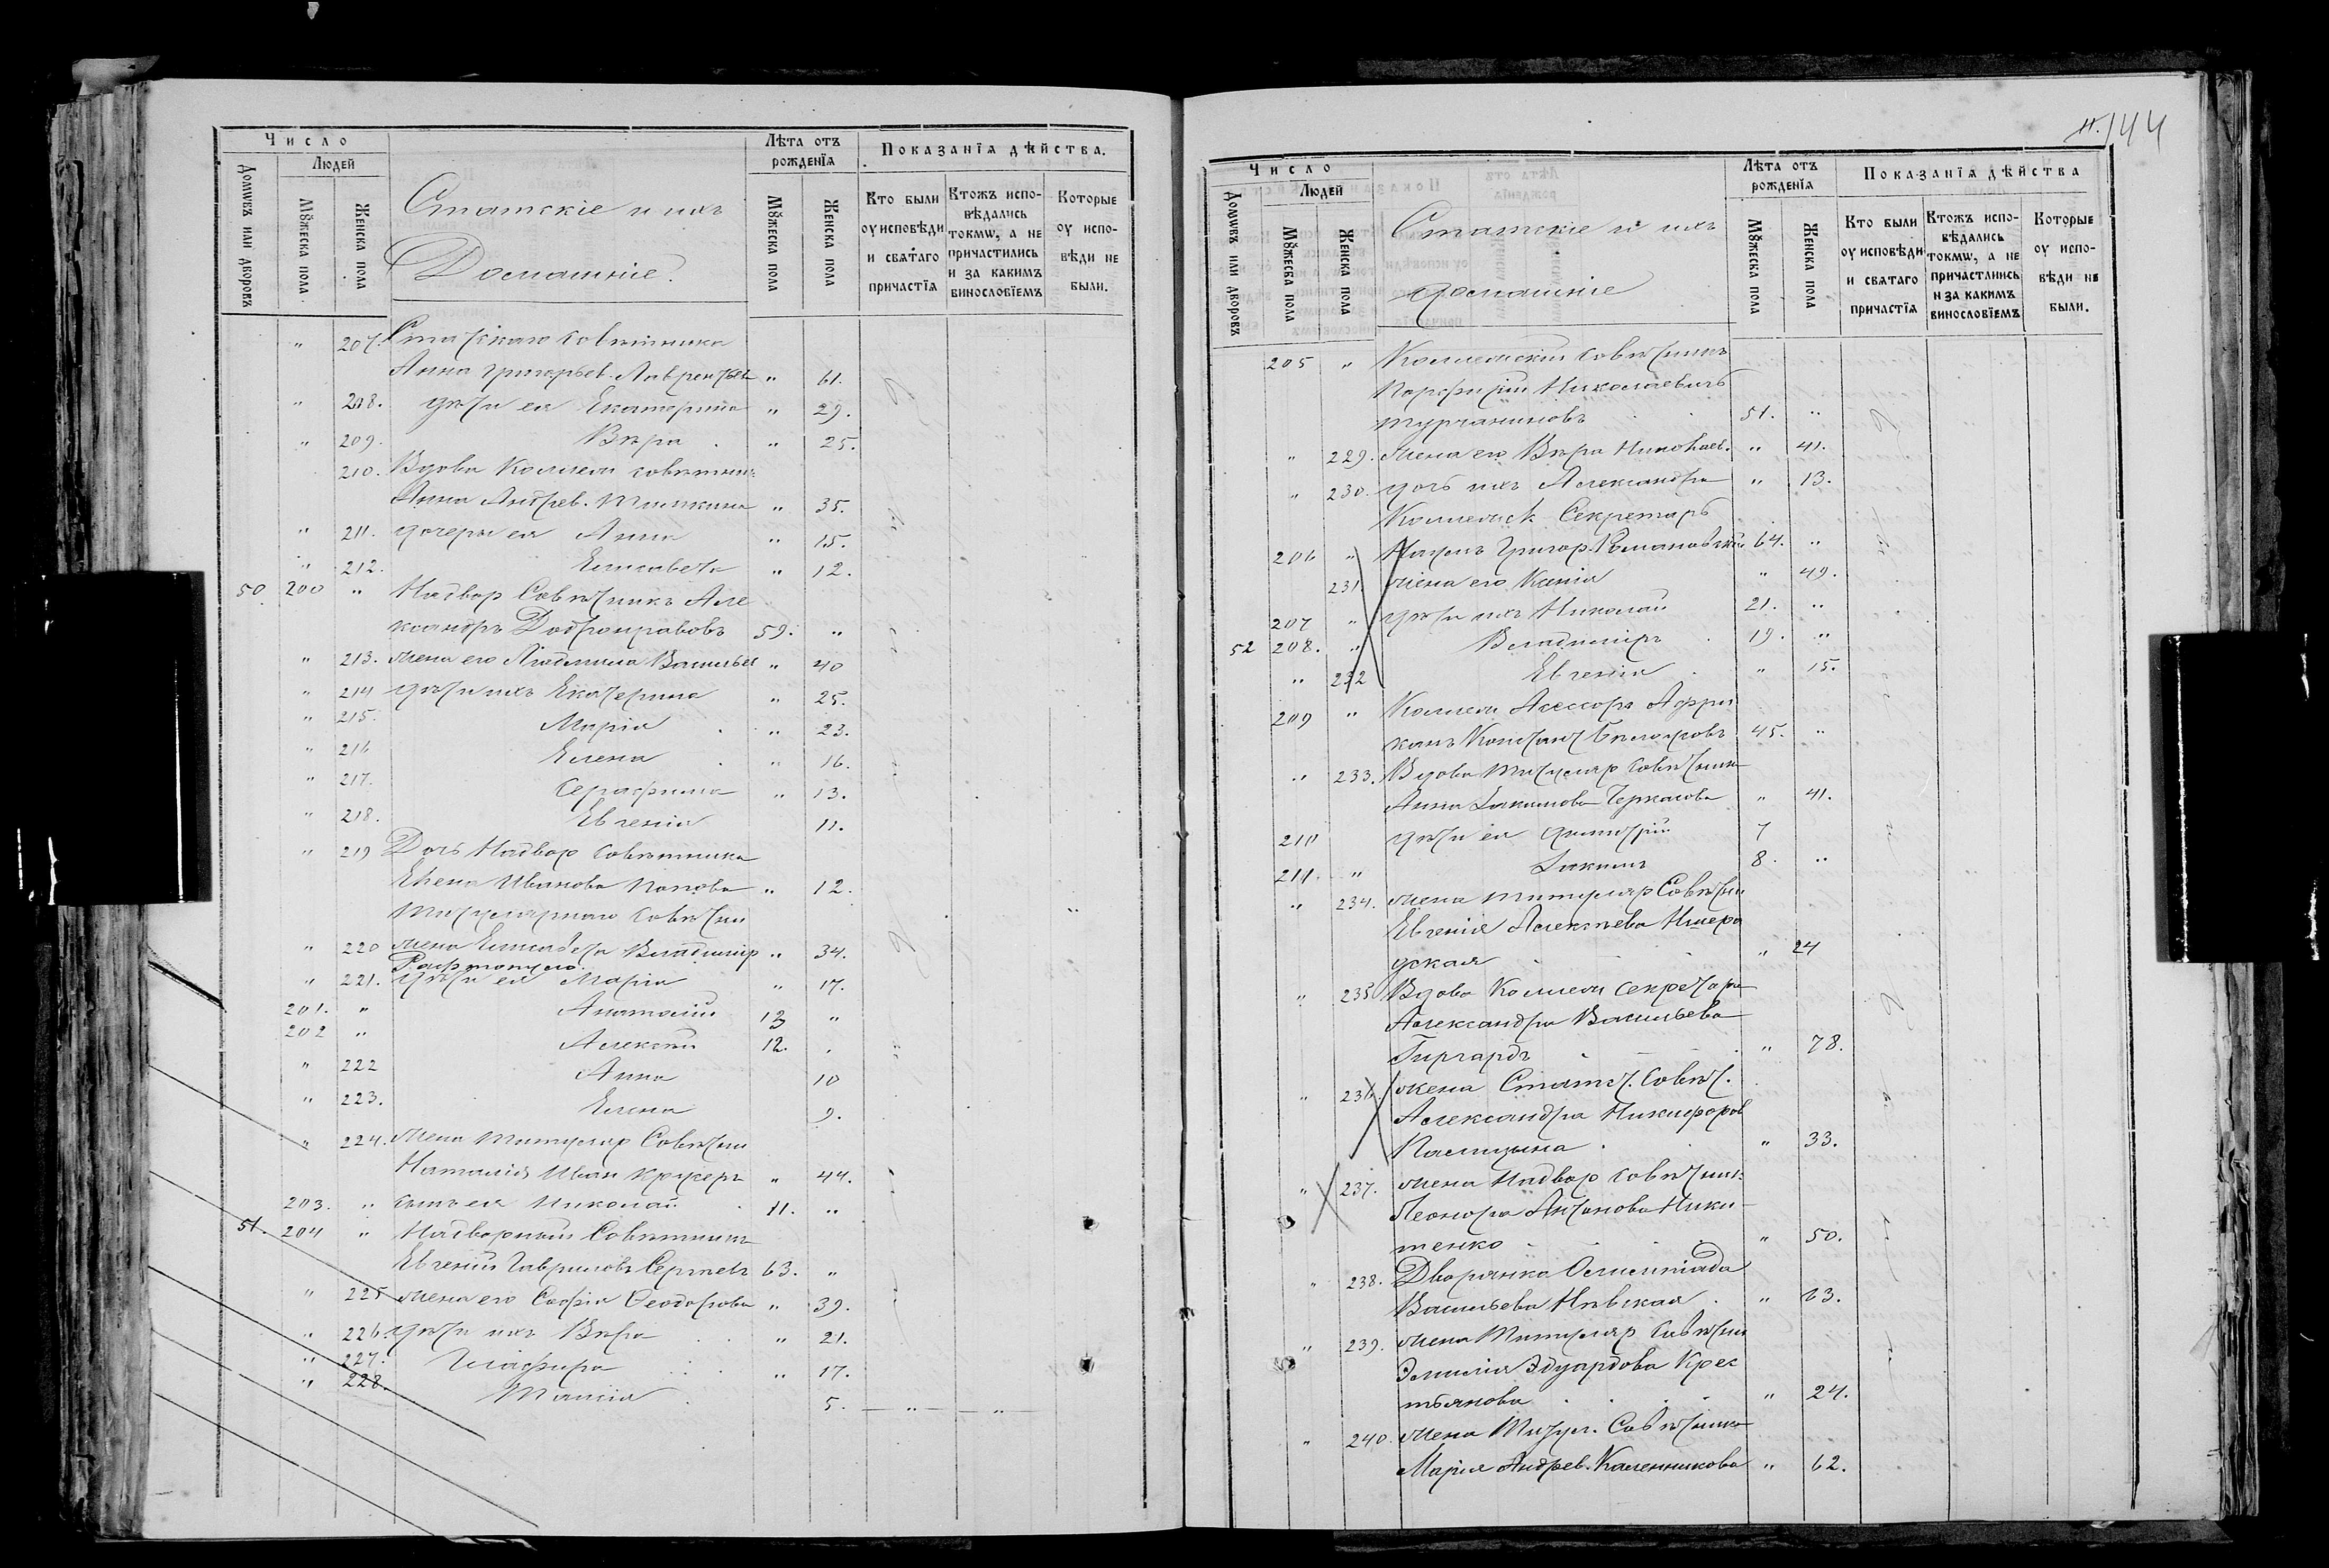 Число
Лѣта отъ рожденїѧ
Показанїѧ дѣйства.
Домѡвъ или дворовъ
Людей
Мꙋжеска пола.
Женска пола
Статскіе и ихъ
Домашніе.
Мꙋжеска пола
Женска пола
Кто были оу исповѣди и свѧтаго причастїѧ
Ктожъ исповѣдались токмѡ, а не причастились и за какимъ винословїемъ
Которые оу исповѣди не были.
" 207. Статскаго Совѣтника
Анна Григорьев. Лаврентьев " 61.
" 208. дѣти ея Екатерина " 29.
" 209. Вѣра " 25.
210. Вдова Коллеж совѣтник
Анна Андрев. " 35.
" 211. дочери ея Анна " 15.
" 212. Елисавета " 12.
50. 200 " Надвор Совѣтникъ Але
ксандръ Добронравовъ 59. "
" 213. жена его Людмила Васильев " 40
" 214 дѣти ихъ Екатерина " 25.
" 215. Марія " 23.
" 216 Елена " 16.
" 217. Серафима " 13.
" 218. Евгенія 11.
" 219 Дочь Надвор совѣтника
Елена Иванова Попова " 12.
Титулярнаго совѣтни
" 220 жена Елисавета Владимір " 34.
" 221. дѣти ея Марія " 17.
201. " Анатолій 13 "
202 " Алексѣй 12. "
" 222 Анна 10
" 223. Елена 9.
" 224. Жена Титуляр Совѣтни
Наталія Иван Крюгеръ " 44.
203. " сынъ ея Николай 11. "
51. 204 " Надворный Совѣтникъ
Евгеній Гавриловъ Сергѣевъ 63. "
" 225 жена его Софія Ѳеодорова " 39.
" 226. дѣти ихъ Вѣра " 21.
" 227. Глафира " 17.
" 228. Таисія 5. " "
144
Число
Лѣта отъ рожденїѧ
Показанїѧ дѣйства
Домѡвъ или дворовъ
Людей
Мꙋжеска пола
Женска пола
Статскіе и ихъ
домашніе
Мꙋжеска пола
Женска пола
Кто были оу исповѣди и свѧтаго причастїѧ
Ктожъ исповѣдались токмѡ, а не причастились и за какимъ винословїемъ
Которые оу исповѣди не были.
205 " Коллежскій совѣтникъ
Порфирій Николаевичъ
Турчаниновъ 51. "
" 229. жена его Вѣра Николаев. " 41.
" 230. дочь ихъ Александра " 13.
Коллежск Секретарь
206 " Григор. Романовскій 64. "
231. жена его Ксенія " 49.
207 " дѣти ихъ Николай 21. "
52 208. " Владиміръ 19. "
" 232 Евгенія " 15.
209 " Коллеж Асессоръ Афри
канъ Констант 45. "
" 233. Вдова титуляр совѣтник
Анна Іакимова Черкасова " 41.
210 дѣти ея Димитрій 7
211. " Іакимъ 8. "
" 234. жена титуляр Совѣтни
Евгенія Алексѣева
" 24
" 235 Вдова Коллеж секретаря
Александра Васильева
Гиргардъ " 78.
" 236. жена Статс. Совѣт.
Александра Никифоров
" 33.
" 237. жена Надвор совѣтник
Леонора Антонова Ники
тенко " 50.
" 238. Дворянка Олимпіада
Васильева Нѣвская " 63.
" 239. жена Титуляр Совѣтни
Эмилія Эдуардова Крес
тьянова " 24.
" 240. жена Титул. Совѣтника
Марія Андрев. Каленникова " 62.